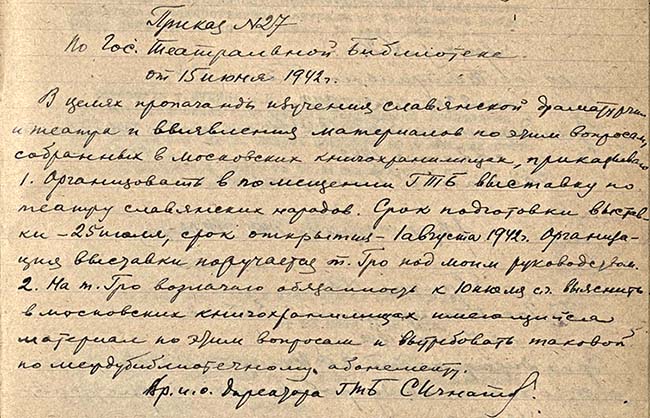 Приказ №27
По Гос. Театральной Библиотеке
от 15 июня 1942г.
В целях пропаганды изучения славянской драматургии
и театра и выявления материалов по этим вопросам,
собранных в московских книгохранилищах, приказываю
1. Организовать в помещении ГТБ выставку по
театру славянских народов. Срок подготовки выстав-
ки – 25 июля, срок открытия – 1 августа 1942г. Организа-
ция выставки поручается т. Гро под моим руководством.
2. На т. Гро возлагаю обязанность к 10 июля с.г. выяснить
в московских книгохранилищах имеющийся
материал по этим вопросам и вытребовать таковой
по междубиблиотечному абонементу.
Вр. и. о. директора ГТБ